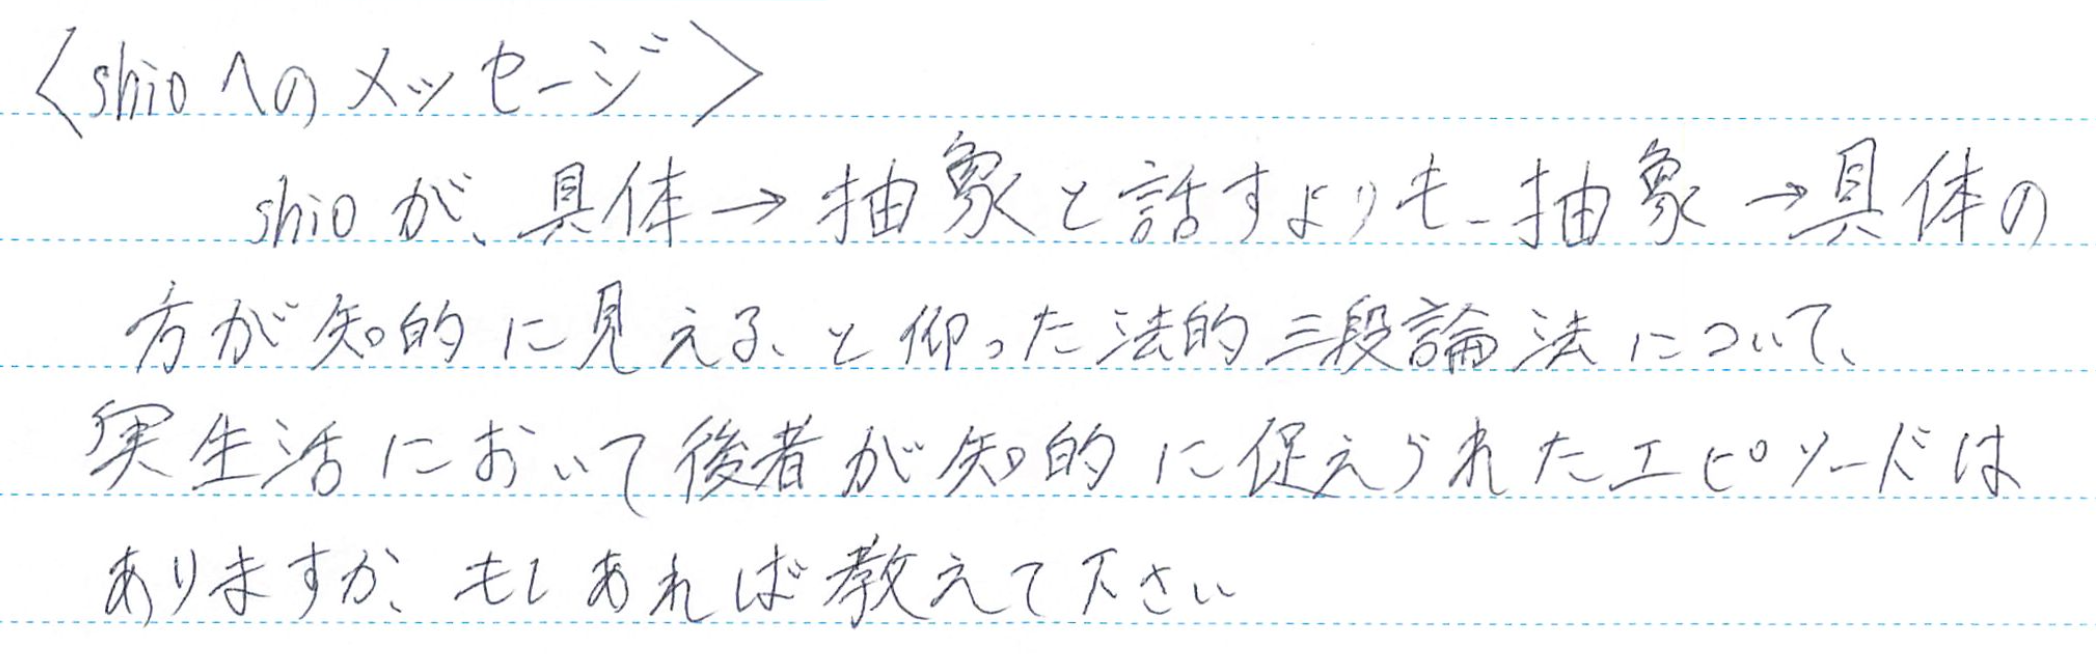 〈shioへのメッセージ〉
shioが、具体→抽象と話すよりも、抽象→具体の
方が知的に見える、と仰った法的三段論法について、
実生活において後者が知的に促えられたエピソードは
ありますか、もしあれば教えて下さい